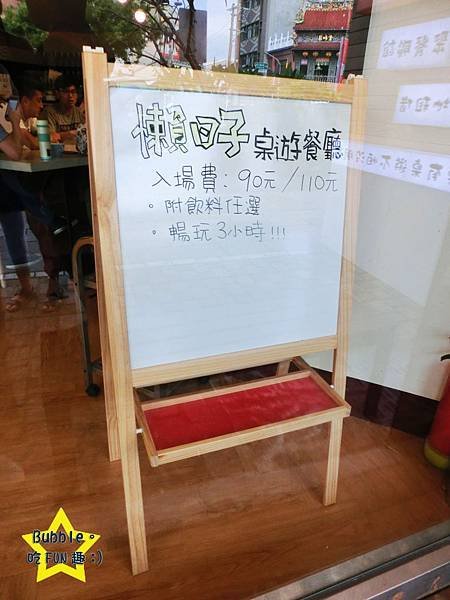 懶日子 桌遊餐廳
入場費：90元／110元
。附飲料任選
。暢玩3小時!!!
Bubble。
吃FUN趣:)